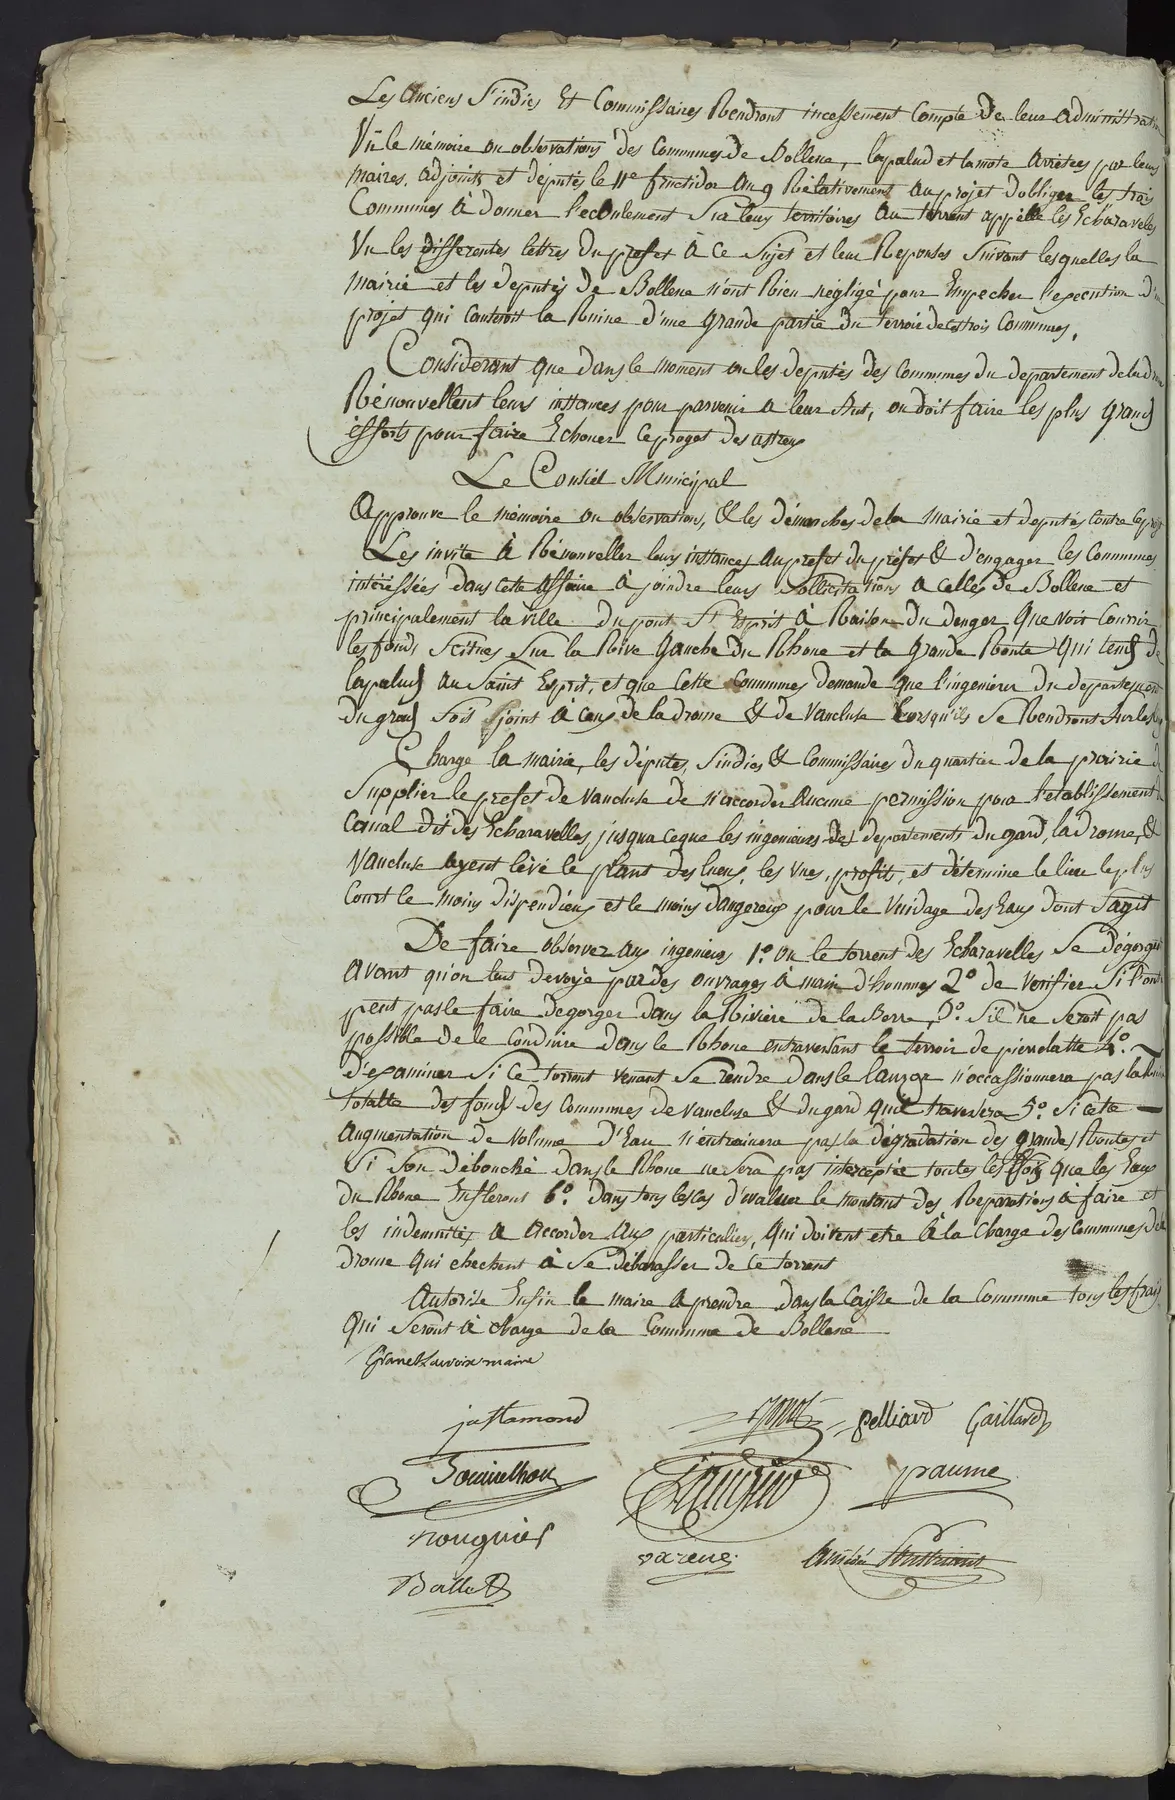 Les anciens Sindics et Commissaires Rendront incessement Compte De leur administration
Vû le mémoire ou observations des Communes de Bollene, lapalud et lamote arrêtées par leurs
maires, adjoints et députés le 11e fructidor an 9 Rélativement au projet d'obliger les trois
Communes à donner l'ecoulement Sur leurs territoires au torrent appellé les Echaravelles
Vu les differentes lettres du prefet à ce Sujet et leur Reponses Suivant lesquelles la
Mairie et les deputés De Bollene n'ont Rien negligé pour Empecher l'execution d'un
projet qui Causeroit la Ruine d'une grande partie du terroir de ces trois Communes,
Considerant que dans le moment ou les deputés des Communes du departement de la drome
Rénouvellent leurs instances pour parvenir a leur But, on doit faire les plus grands
efforts pour faire Echouer ce projet desastreux
Le Conseil Municipal
Approuve le mémoire ou observations, & les démarches de la mairie et députés contre ce projet
Les invite à Rénouveller leurs instances au prefet du prefet & d'engager les Communes
interessées dans cette affaire a joindre leurs Sollicitations a celles de Bollene et
principalement la ville du pont St Esprit à Raison du danger que voit Courrir
les fonds Scitués Sur la Rive gauche du Rhone et la grande Route qui tend de
lapalud au Saint Esprit, et que cette Commune demande que l'ingenieur du departement
du gard Soit joint à ceux de la drome & de Vaucluse Lorsqu'ils Se Rendront sur les lieux
Charge la mairie, les députés, Sindics & Commissaires du quartier de la prairie de
Supplier le prefet de Vaucluse de n'accorder Aucune permission pour l'etablissement du
Canal dit des Echaravelles, jusqua ceque les ingenieurs des departements du gard, la drome, &
Vaucluse ayent lévé le plant des lieux, les vues, profils, et détermine le lieu le plus
Court le moins dispendieux et le moins dangereux pour le Vuidage des Eaux dont S'agit
De faire observer aux ingenieurs 1.º ou le torrent des Echaravelles Se dégorgoit
avant qu'on leut devoyé par des ouvrages à main d'hommes 2º de verifier Si l'on ne
peut pas le faire degorger dans la Riviere de la Berre, 3.º S'il ne Seroit pas
possible de le Conduire dans le Rhone entraversant le terroir de pierrelatte 4º.
d'examiner Si ce torrent venant Se rendre dans le lauzon n'occassionnera pas la Ruine
totalle des fonds des Communes de Vaucluse & du gard quil traversera 5º. Si cette
augmentation de volume d'Eau n'entrainera pas la dégradation des grandes Routes et
Si Son débouché dans le Rhone ne Sera pas interceptée toutes les fois que les Eaux
du Rhone Enfleront 6º. dans tous les cas d'evaluer le montant des Reparations à faire et
les indemnités a accorder aux particuliers, qui doivent etre à la charge des Communes de la
drome qui cherchent à Se débarasser de ce torrent
Autorise Enfin le maire a prendre dans la Caisse de la Commune tous les frais
qui Seront à charge de la Commune de Bollene
Granet Lavoix maire
justamond
pelliard Gaillard
paume
rouguier
varene